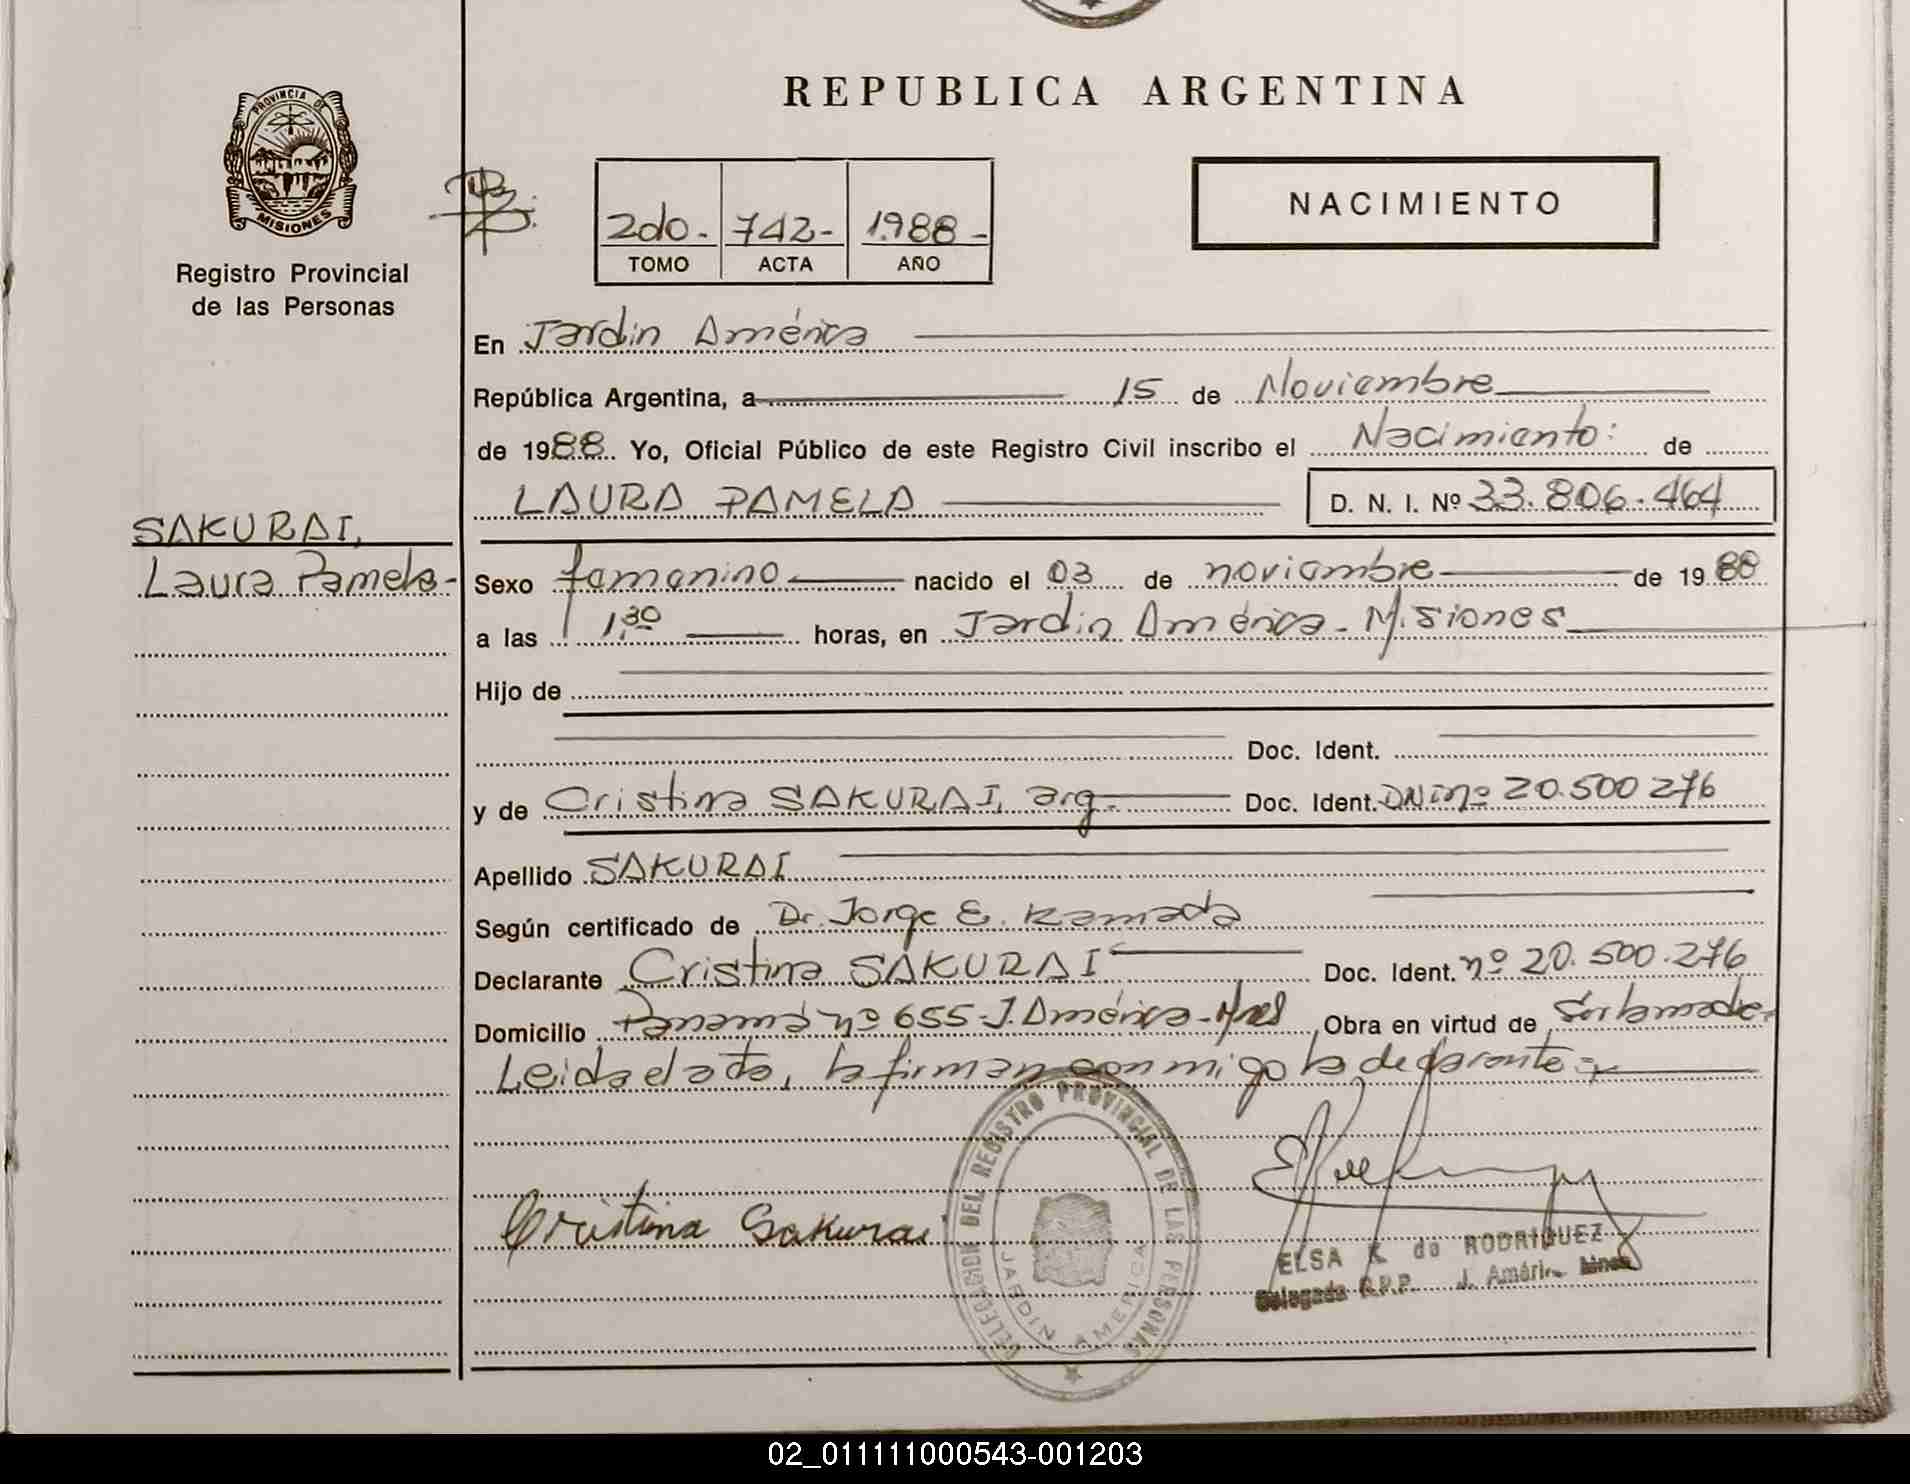 REPUBLICA ARGENTINA
PROVINCIA DE
MISIONES
Registro Provincial
de las Personas
2do - 742 - 1.988 -
TOMO ACTA AÑO
NACIMIENTO
En Jardin América
República Argentina, a 15 de Noviembre
de 1988. Yo, Oficial Público de este Registro Civil inscribo el Nacimiento: de
LAURA PAMELA D. N. I. Nº 33.806.464
SAKURAI,
Laura Pamela-
Sexo femenino nacido el 03 de noviembre de 1988
a las 1,30 horas, en Jardin América - Misiones
Hijo de
Doc. Ident.
y de Cristina SAKURAI, arg. Doc. Ident. DNI nº 20.500 276
Apellido SAKURAI
Según certificado de Dr. Jorge E. Kamada
Declarante Cristina SAKURAI Doc. Ident. nº 20.500.276
Domicilio Panamá nº 655-J. América - Mnes Obra en virtud de Ser la madre.
Leida el acta, la firman conmigo la declarante =
Cristina Sakurai
DELEGACION DEL REGISTRO PROVINCIAL DE LAS PERSONAS
JARDIN AMERICA
ELSA K de RODRIGUEZ
Delegada R.P.P. J. América Mnes
02_011111000543-001203